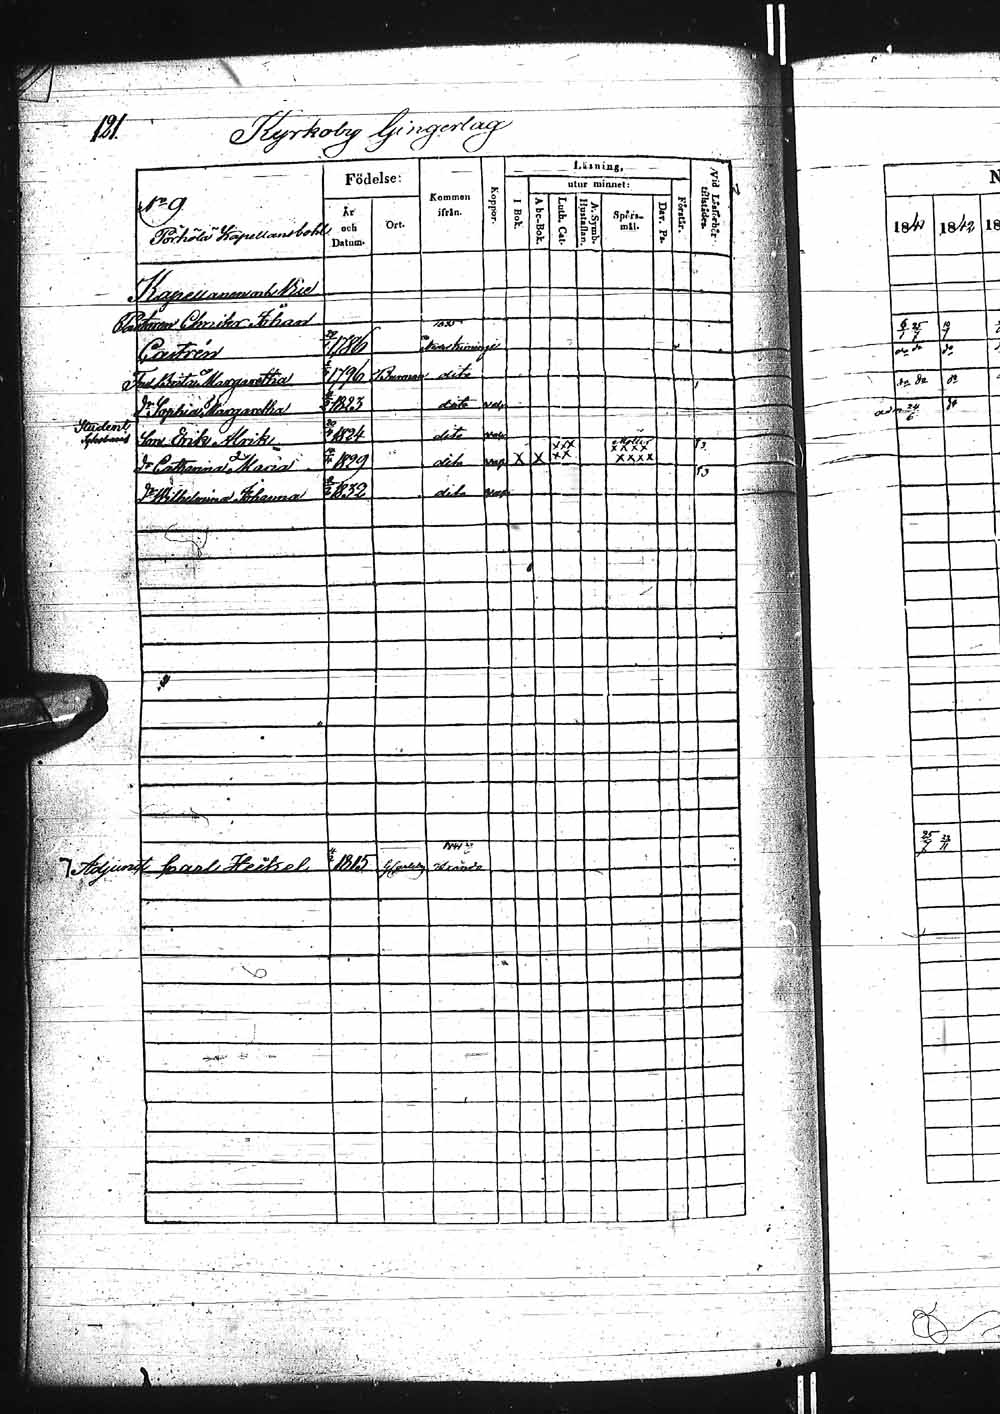 121.
Kyrkoby Gingerlag
No 9
Pörhölä Kapellansbohl
Födelse:
År och Datum.
Ort.
Kommen ifrån.
Koppor.
Läsning,
utur minnet:
I Bok.
Abc-Bok.
Luth. Cat.
A. Symb. Hustaflan.
Spörs-mål.
Dav. Ps.
Förstår.
Vid Läsförhör tillstädes.
Kapellanen och Vice
Pastoren Christer Johan
Castrén 1786
Brita Margaretha 1796 Burman dito
dr Sophia Margaretha 1823 dito vac.
Student
Son Erik Alrik 1824 dito vac.
dr Catharina Maria 1829 dito vac. X X XXX XX XXXX XXXX
dr Wilhelmina Johanna 1832 dito vac.
Adjunct Carl Heikel 4/2 1815
N
1841 1842 18
6/7 25/7
do do do
do do do
24/6 do
25/7 22/11